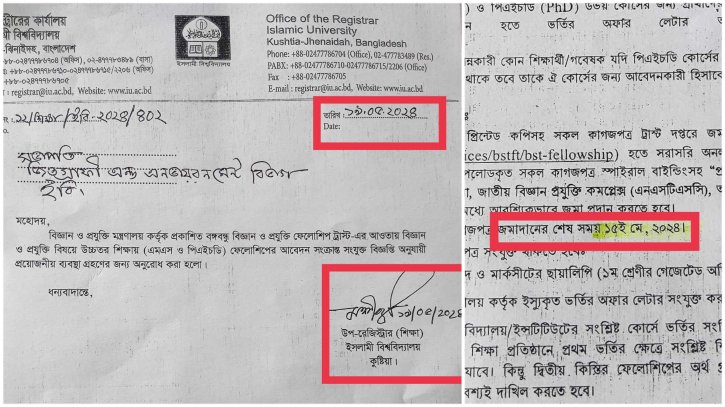 ট্রারের কার্যালয়
মী বিশ্ববিদ্যালয়
-ঝিনাইদহ, বাংলাদেশ
Office of the Registrar
Islamic University
Kushtia-Jhenaidah, Bangladesh
Phone: +88-02477786704 (Office), 02-477783489 (Res.)
PABX: +88-02477786710-02477786715/2206 (Office)
Fax : +88-02477786705
E-mail : registrar@iu.ac.bd, Website: www.iu.ac.bd
: registrar@iu.ac.bd, Website: www.iu.ac.bd
ইসলামী বিশ্ববিদ্যালয়
তারিখ : ১৯.০৫.২০২৪
Date:
সভাপতি
বিভাগ
ইবি.
মহোদয়,
বিজ্ঞান ও প্রযুক্তি মন্ত্রণালয় কর্তৃক প্রকাশিত বঙ্গবন্ধু বিজ্ঞান ও প্রযুক্তি ফেলোশিপ ট্রাস্ট-এর আওতায় বিজ্ঞান
ও প্রযুক্তি বিষয়ে উচ্চতর শিক্ষায় (এমএস ও পিএইচডি) ফেলোশিপের আবেদন সংক্রান্ত সংযুক্ত বিজ্ঞপ্তি অনুযায়ী
প্রয়োজনীয় ব্যবস্থা গ্রহণের জন্য অনুরোধ করা হলো।
ধন্যবাদান্তে,
১৯/০৫/২০২৪
উপ-রেজিস্ট্রার (শিক্ষা)
ইসলামী বিশ্ববিদ্যালয়
কুষ্টিয়া।
ও পিএইচডি (PhD) উভয় কোর্সের জন্য
ন হতে ভর্তির অফার লেটার
ন্নকারী কোন শিক্ষার্থী/গবেষক যদি পিএইচডি কোর্সের
থাকে তবে তাকে ঐ কোর্সের জন্য আবেদনকারী হিসাবে
প্রিন্টেড কপিসহ সকল কাগজপত্র ট্রাস্ট দপ্তরে জম
ices/bstft/bst-fellowship) হতে সরাসরি অনল
পলোডকৃত সকল কাগজপত্র স্পাইরাল বাইন্ডিংসহ "প্র
, জাতীয় বিজ্ঞান প্রযুক্তি কমপ্লেক্স (এনএসটিএসসি), আ
মধ্যে আবশ্যিকভাবে জমা প্রদান করতে হবে।
গজপত্র জমাদানের শেষ সময় ১৫ই মে, ২০২৪।
পত্র সংযুক্ত থাকতে হবে:
দ ও মার্কসীটের ছায়ালিপি (১ম শ্রেণীর গেজেটেড অফি
লয় কর্তৃক ইস্যুকৃত ভর্তির অফার লেটার সংযুক্ত কর
বিদ্যালয়/ইন্সটিটিউটের সংশ্লিষ্ট কোর্সে ভর্তির সংশি
শিক্ষা প্রতিষ্ঠানে প্রথম ভর্তির ক্ষেত্রে সংশ্লিষ্ট বি
যাবে। কিন্তু দ্বিতীয় কিস্তির ফেলোশিপের অর্থ প্র
বশ্যই দাখিল করতে হবে।